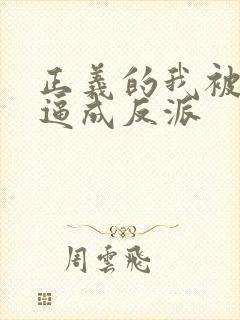 正義的我被
逼成反派
周雲飛